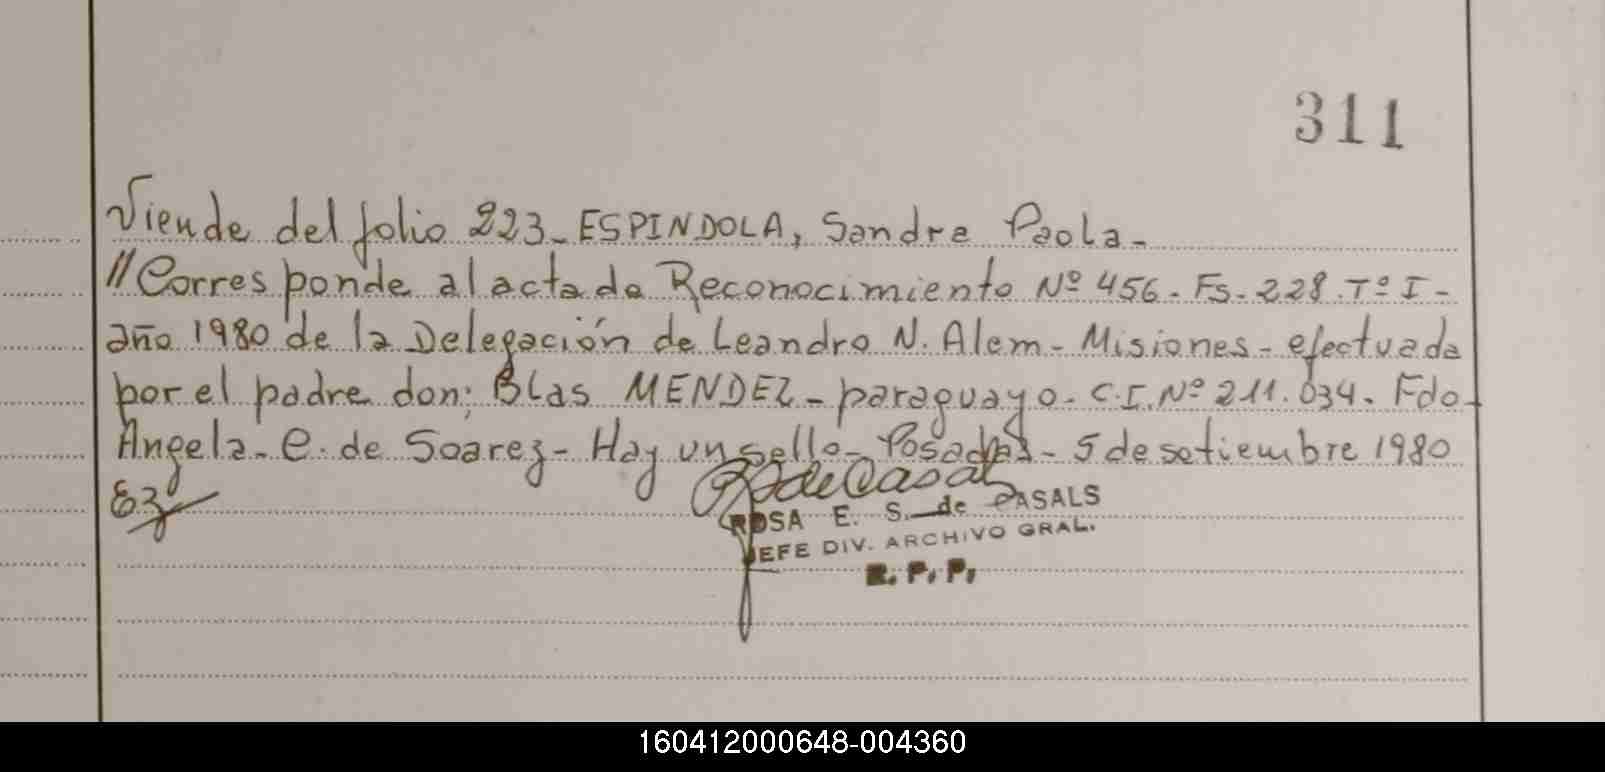 311
Viende del folio 223_ ESPINDOLA, Sandra Paola_
//Corresponde al acta de Reconocimiento Nº 456. Fs. 228. Tº I-
año 1980 de la Delegación de Leandro N. Alem - Misiones - efectuada
por el padre don; Blas MENDEZ - paraguayo. C.I. Nº 211.034. Fdo-
Angela. E. de Soarez - Hay un sello - Posadas - 5 de setiembre 1980
ROSA E. S. de CASALS
JEFE DIV. ARCHIVO GRAL.
R. P. P.
160412000648-004360